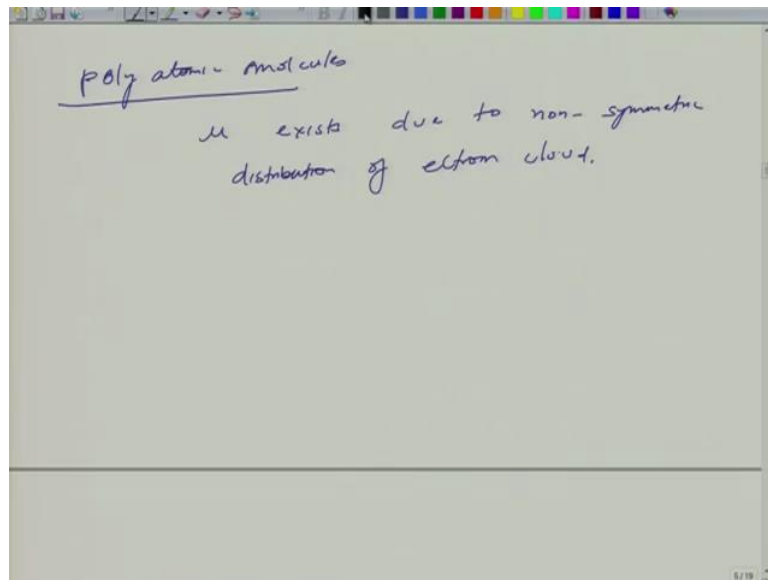 poly atomic molcules
μ exists due to non-symmetric
distribution of ectrom cloud.
5/19